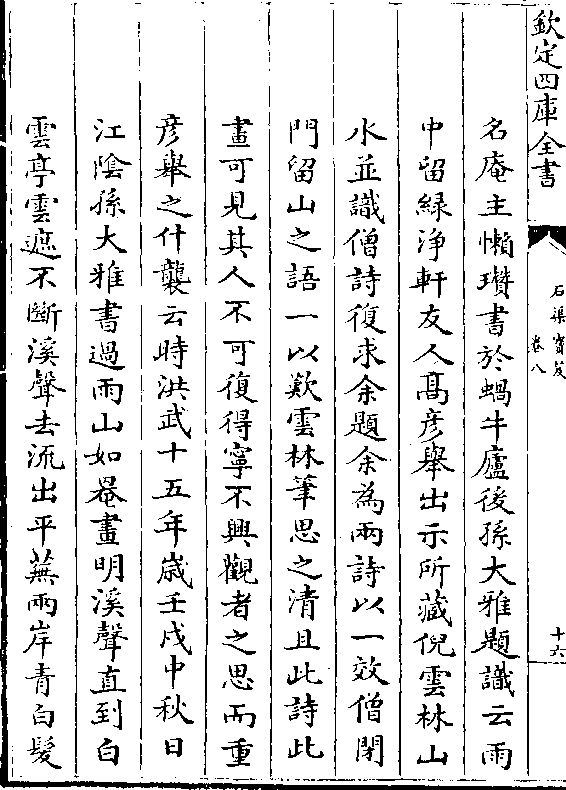 欽定四庫全書
石渠寶笈
卷八
十六
名庵主懶瓚書於蝸牛廬後孫大雅題識云雨
中留緑淨軒友人髙彦舉出示所藏倪雲林山
水並識僧詩復求余題余為兩詩以一效僧閉
門留山之語一以歎雲林筆思之清且此詩此
畫可見其人不可復得寧不興觀者之思而重
彦舉之什襲云時洪武十五年嵗壬戌中秋日
江陰孫大雅書過雨山如罨畫明溪聲直到白
雲亭雲遮不斷溪聲去流出平蕪兩岸青白髮